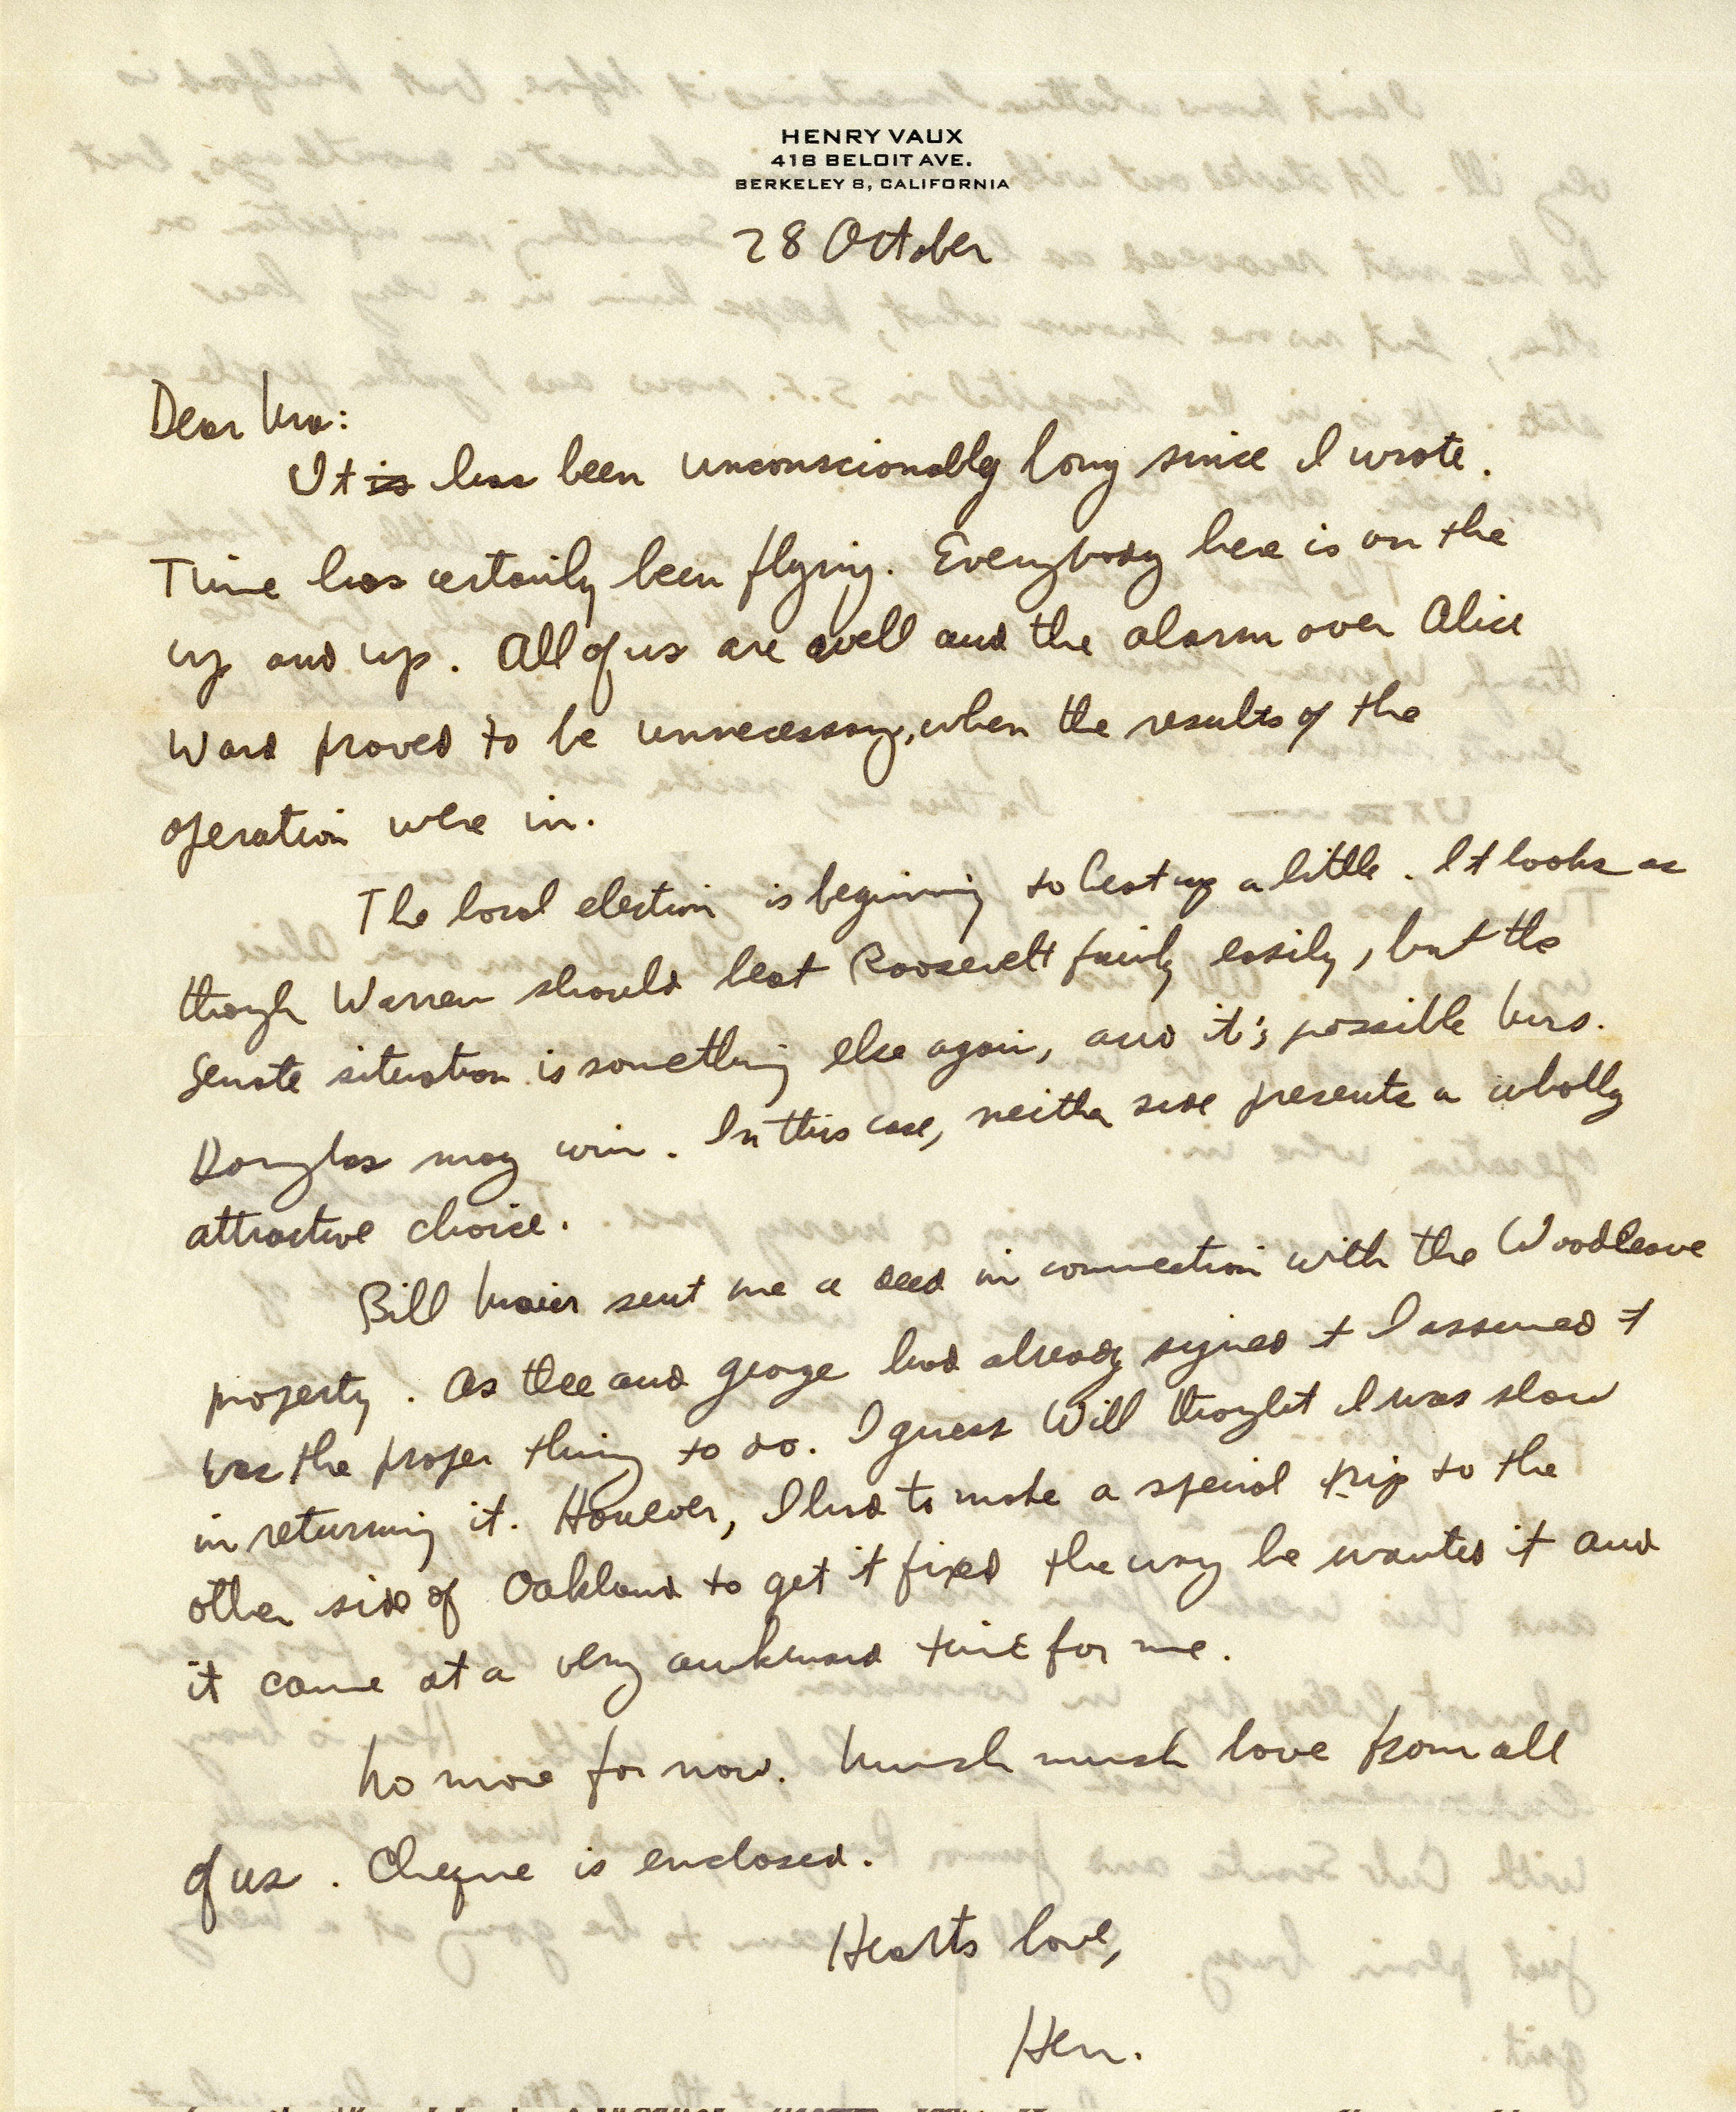 HENRY VAUX
418 BELOIT AVE.
BERKELEY 8, CALIFORNIA
28 October
Dear Ma:
It is has been unconscionably long since I wrote.
Time has certainly been flying. Everybody here is on the
up and up. All of us are well and the alarm over Alice
Ward proved to be unnecessary, when the results of the
operation were in.
The local election is beginning to heat up a little. It looks as
though Warren should beat Roosevelt fairly easily, but the
Senate situation is something else again, and it's possible Mrs.
Douglas may win. In this case, neither side presents a wholly
attractive choice.
Bill Maier sent me a deed in connection with the Woodleave
property. As thee and George had already signed it I assumed it
was the proper thing to do. I guess Will thought I was slow
in returning it. However, I had to make a special trip to the
other side of Oakland to get it fixed the way he wanted it and
it came at a very awkward time for me.
No more for now. Much much love from all
of us. Cheque is enclosed.
Hearts love,
Hen.